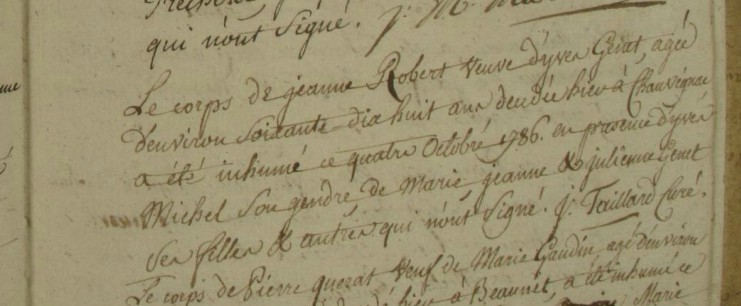 qui n'ont signé. j. M.
Le corps de jeanne Robert veuve d'yves Genet, agée
d'environ soixante dix huit ans decedée hier à Chauvignac
a été inhumé ce quatre Octobre 1786. en presence d'yves
Michel son gendre de Marie, jeanne & julienne Genet
ses filles & autres qui n'ont signé. j. Taillard curé.
Le corps de Pierre querat veuf de Marie Gaudin, agé d'environ
hier à Beaunit, a été inhumé ce
Marie